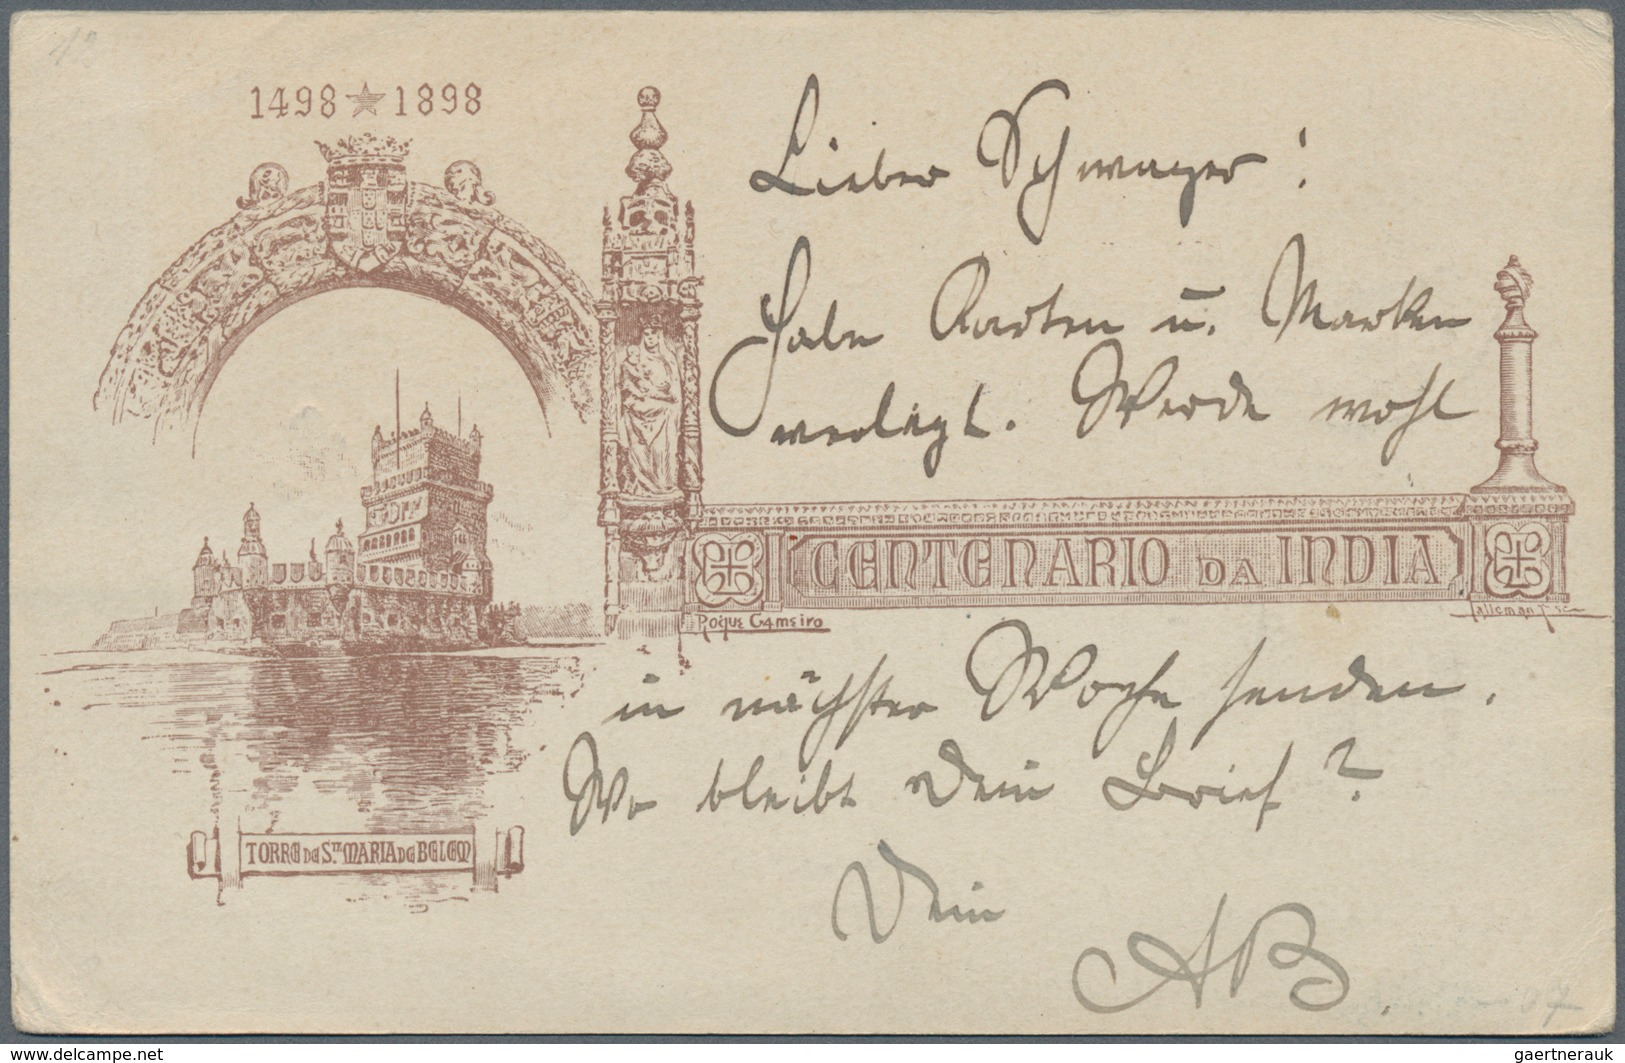 1498 ★ 1898
Lieber Schwager!
Habe Karten u. Marken
verlegt. Werde wohl
CENTENARIO DA INDIA
Roque Gameiro
in nächster Woche senden.
Wo bleibt Dein Brief?
TORRE DE S.TA MARIA DE BELEM
Dein
AB.
www.delcampe.net
gaertnerauk